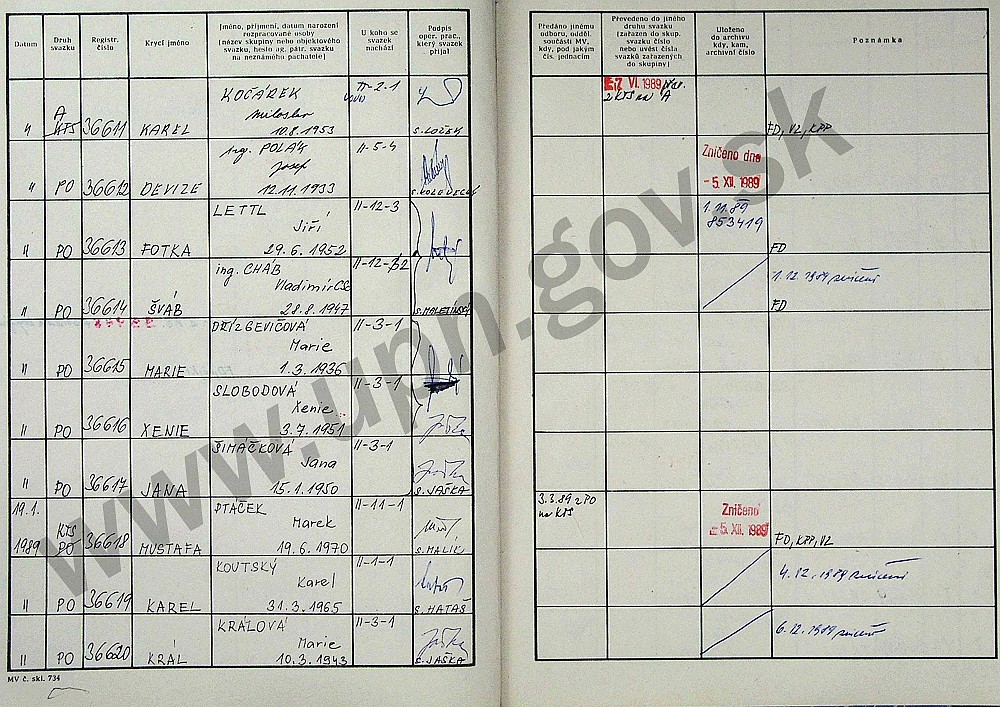 Datum
Druh svazku
Registr. číslo
Krycí jméno
Jméno, příjmení, datum narození
rozpracované osoby
(název skupiny nebo objektového
svazku, heslo ag. pátr. svazku
na neznámého pachatele)
U koho se
svazek
nachází
Podpis
oper. prac.,
který svazek
přijal
Předáno jinému
odboru, odděl.
součásti MV,
kdy, pod jakým
čís. jednacím
Převedeno do jiného
druhu svazku
(zařazen do skup.
svazku číslo
nebo uvést čísla
svazků zařazených
do skupiny)
Uloženo
do archivu
kdy, kam,
archivní číslo
Poznámka
KOČÁREK II-2-1 VI. 1989
A Miloslav z KTS na A
" KTS 36611 KAREL 10.8.1953 S. LOŽEK FD, VZ, KPP
ing. POLÁK II-5-4 Zničeno dne
Josef -5. XII. 1989
" PO 36612 DEVIZE 12.11.1933
LETTL II-12-3 1.11.89
Jiří 853419
" PO 36613 FOTKA 29.6.1952 FD
ing. CHÁB II-12- 1.12.1989 zničení
Vladimír CSc
" PO 36614 ŠVÁB 28.8.1947 FD
II-3-1
Marie
" PO 36615 MARIE 1.3.1936
SLOBODOVÁ II-3-1
Xenie
" PO 36616 XENIE 3.7.1951
ŠIMÁČKOVÁ II-3-1
Jana
" PO 36617 JANA 15.1.1950 S. JAŠKA
19.1. PTÁČEK II-11-1 3.3.89 z PO Zničeno
KTS Marek na KTS -5. XII. 1989
1989 PO 36618 MUSTAFA 19.6.1970 S. MALÍK FD, KPP, VZ
KOUTSKÝ II-1-1
Karel 4.12.1989 zničení
" PO 36619 KAREL 31.3.1965 S. HATAŠ
KRÁLOVÁ II-3-1
Marie 6.12.1989 zničení
" PO 36620 KRÁL 10.3.1943 S. JAŠKA
MV č. skl. 734
www.upn.gov.sk